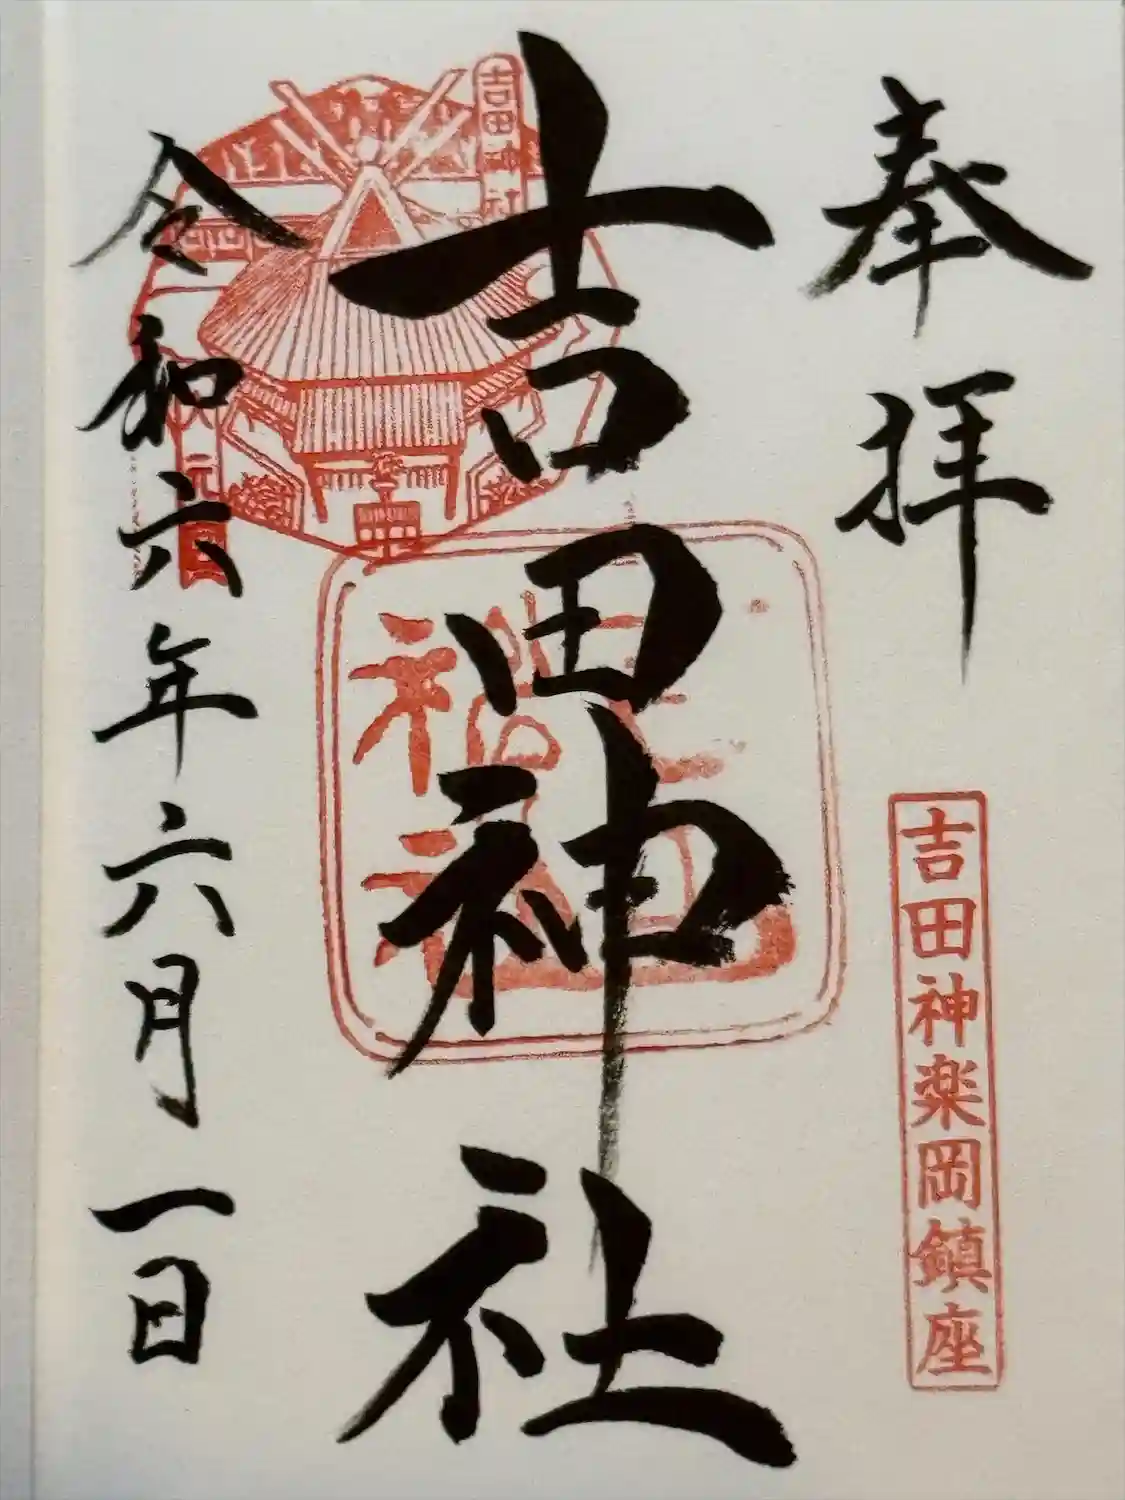 奉拝
吉田神楽岡鎮座
吉田神社
吉田神社
令和六年六月一日